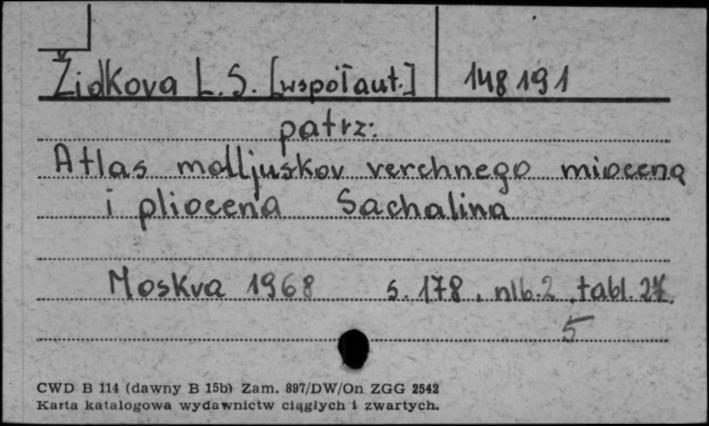 Židkova L. S. [wspołaut.] 148191
patrz:
Atlas molljuskov verchnego miocena
i pliocena Sachalina
Moskva 1968 s. 178, nlb. 2, tabl.
5
CWD B 114 (dawny B 15b) Zam. 897/DW/On ZGG 2542
Karta katalogowa wydawnictw ciągłych i zwartych.